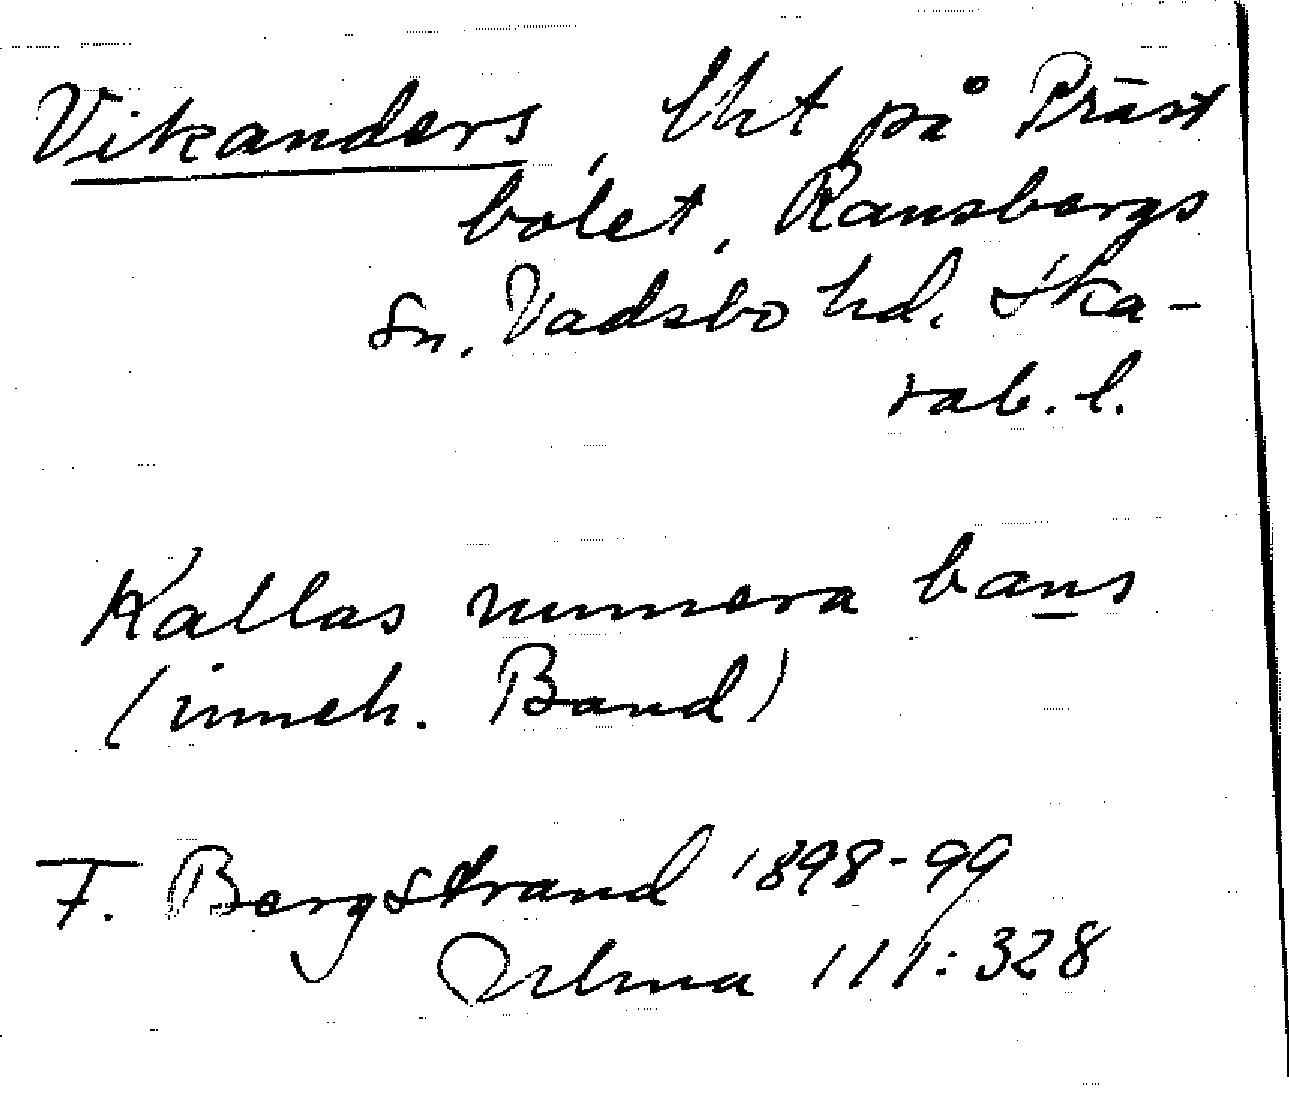 Vikanders, lht på Präst
bolet, Ransbergs
sn, Vadsbo hd. Ska-
rab. l.
Kallas numera bans
(inneh. Band)
F. Bergstrand 1898-99
Ulma 111:328